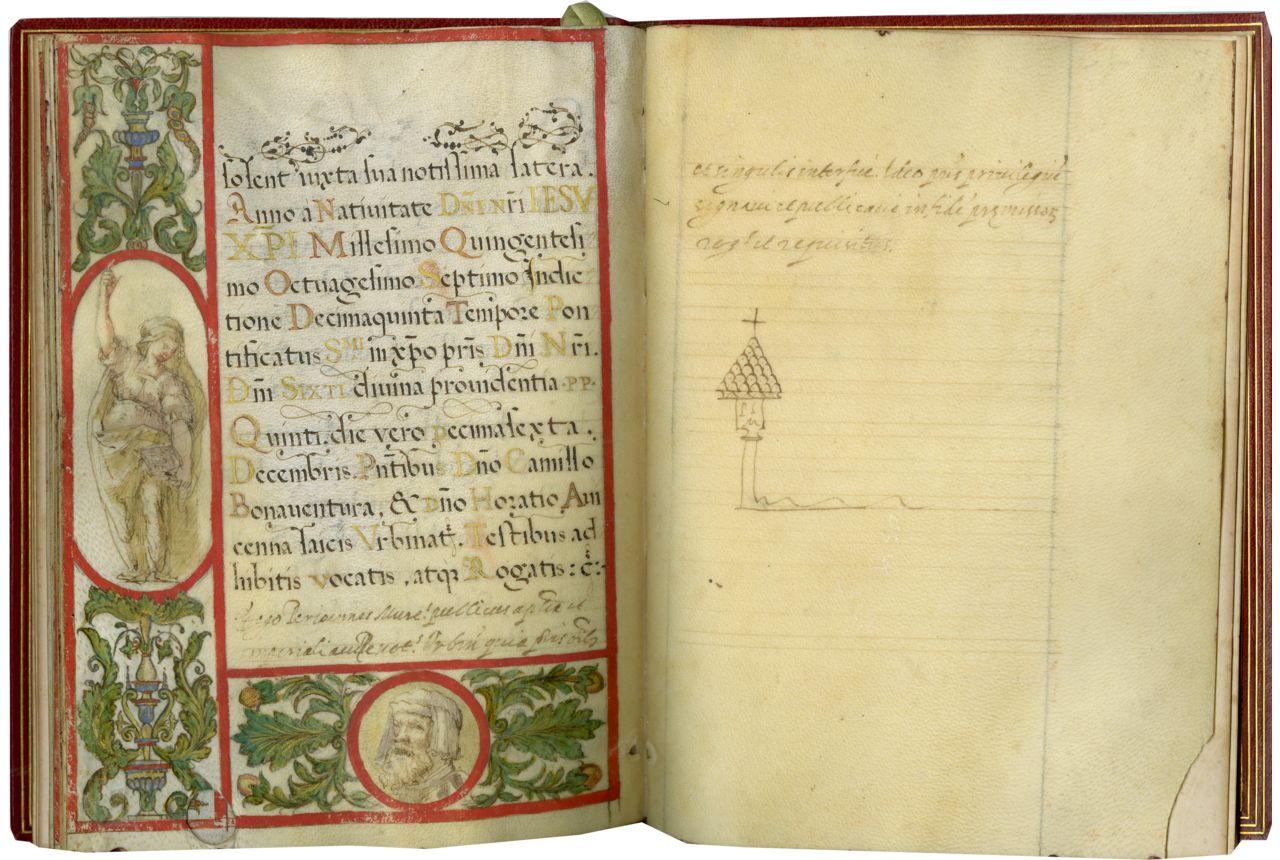 solent iuxta sua notissima latera.
Anno a Nativitate Dn̄i Nr̄i IESV
XP̄I Millesimo Quingentesi
mo Octuagesimo Septimo Indic
tione Decimaquinta Tempore Pon
tificatus Sᴹᴵ in xp̄o pr̄is Dn̄i Nr̄i.
Dn̄i Sixti divina providentia .PP.
Quinti. die vero decimasexta.
Decembris. Pn̄tibus Dn̄o Camillo
Bonaventura, & Dn̄o Horatio Avi
cenna laicis Vrbinat. Testibus ad
hibitis vocatis, atq̄ Rogatis: &c̄:
Ego publicus aplica et
imperiali Vrbin quia
et singulis interfui. Ideo privilegiū
signavi et publicavi in fidē premissor
rog. et requisitus.